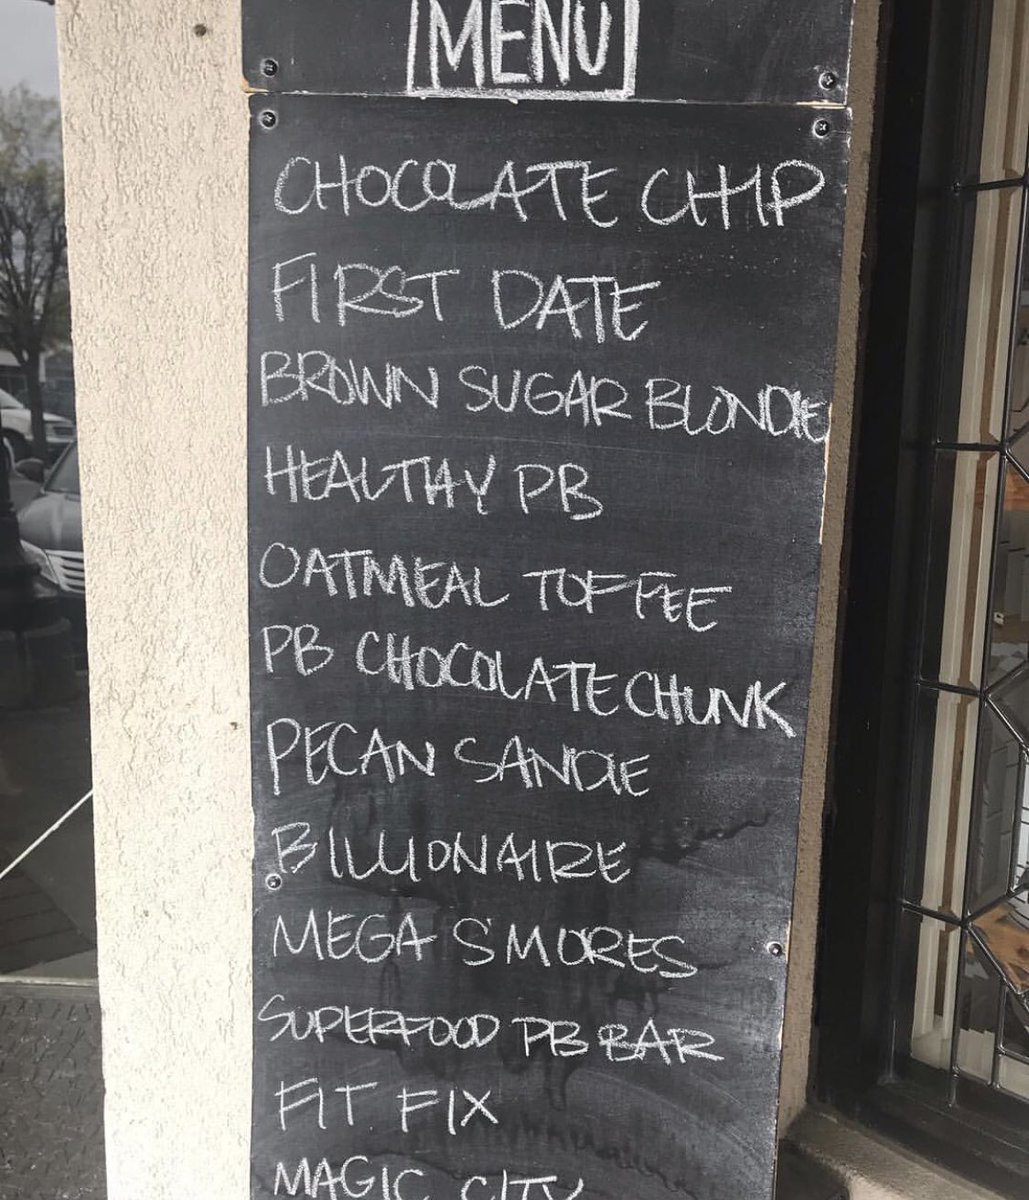 MENU
CHOCOLATE CHIP
FIRST DATE
BROWN SUGAR BLONDIE
HEALTHY PB
OATMEAL TOFFEE
PB CHOCOLATE CHUNK
PECAN SANDIE
BILLIONAIRE
MEGA S'MORES
SUPERFOOD PB BAR
FIT FIX
MAGIC CITY